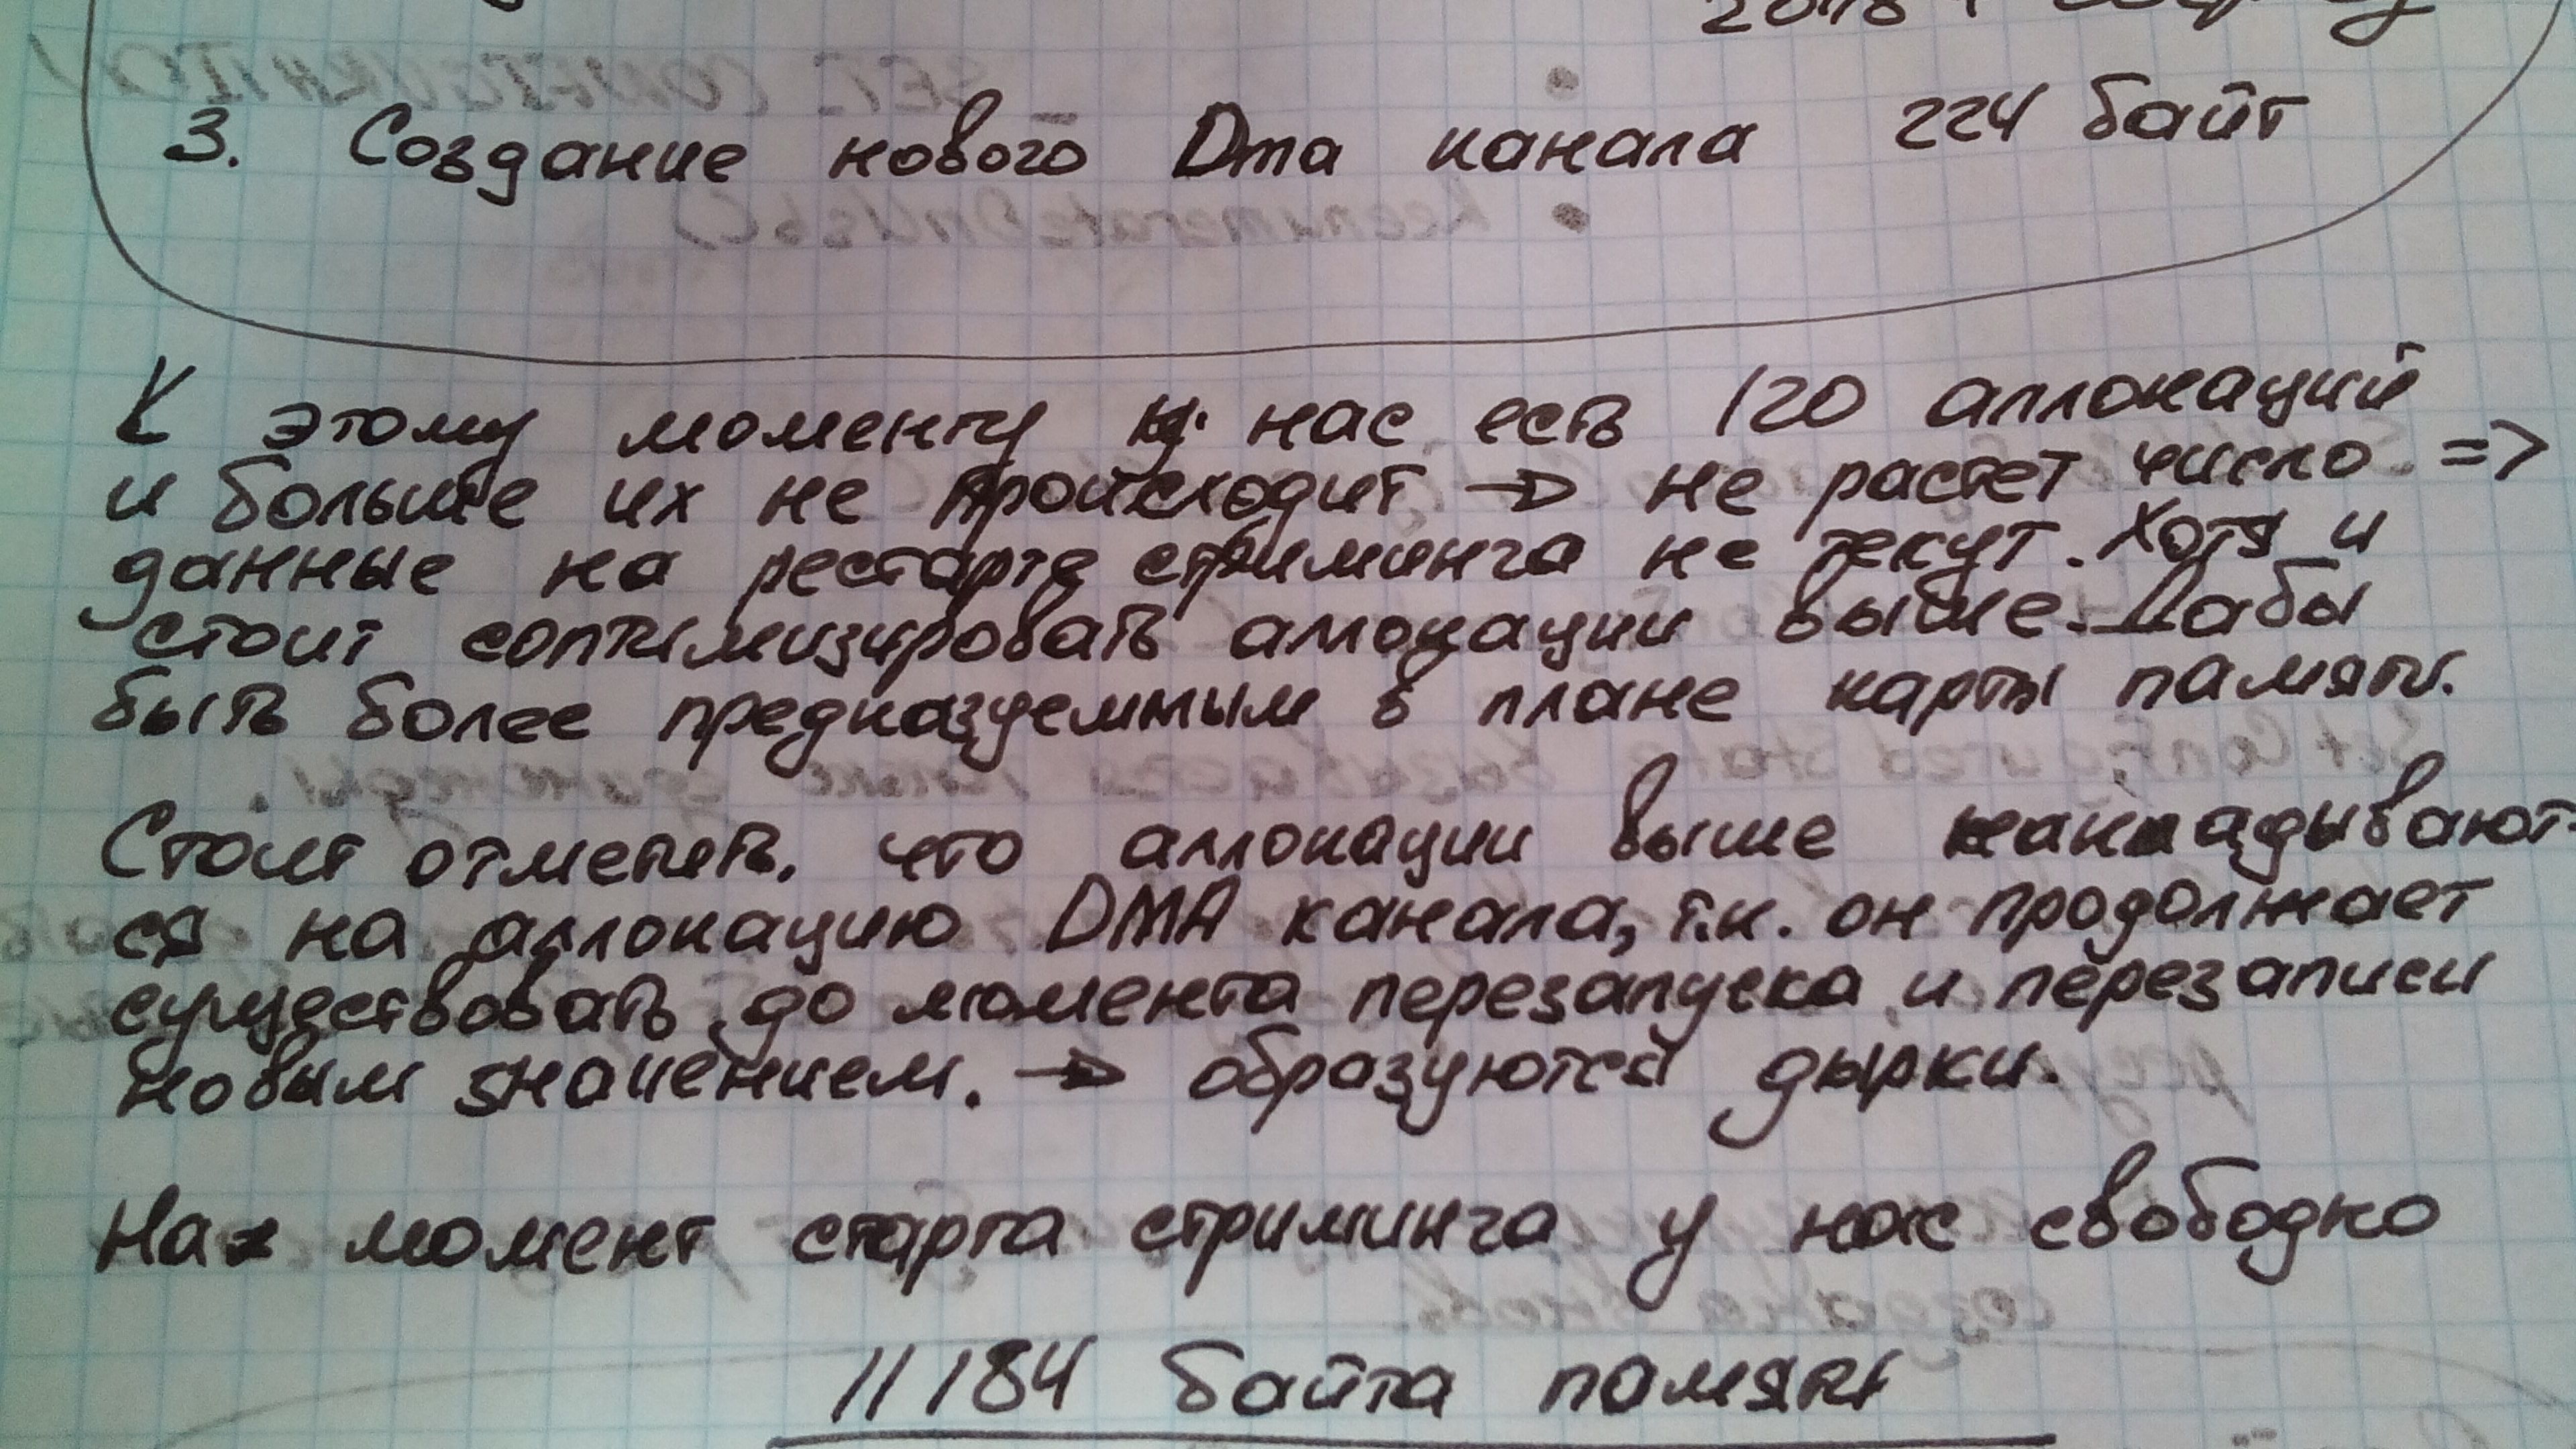 3. Создание нового Dma канала 224 байт
К этому моменту у нас есть 120 аллокаций
и больше их не происходит → не растет число =>
данные на рестарте стриминга не текут. Хотя и
стоит соптимизировать аллокации выше. Дабы
быть более предказуеммым в плане карты памяти.
Стоит отметить, что аллокации выше накладывают-
ся на аллокацию DMA канала, т.к. он продолжает
существовать до момента перезапуска и перезаписи
новым значением. → образуются дырки.
На момент старта стриминга у нас свободно
11184 байта памяти